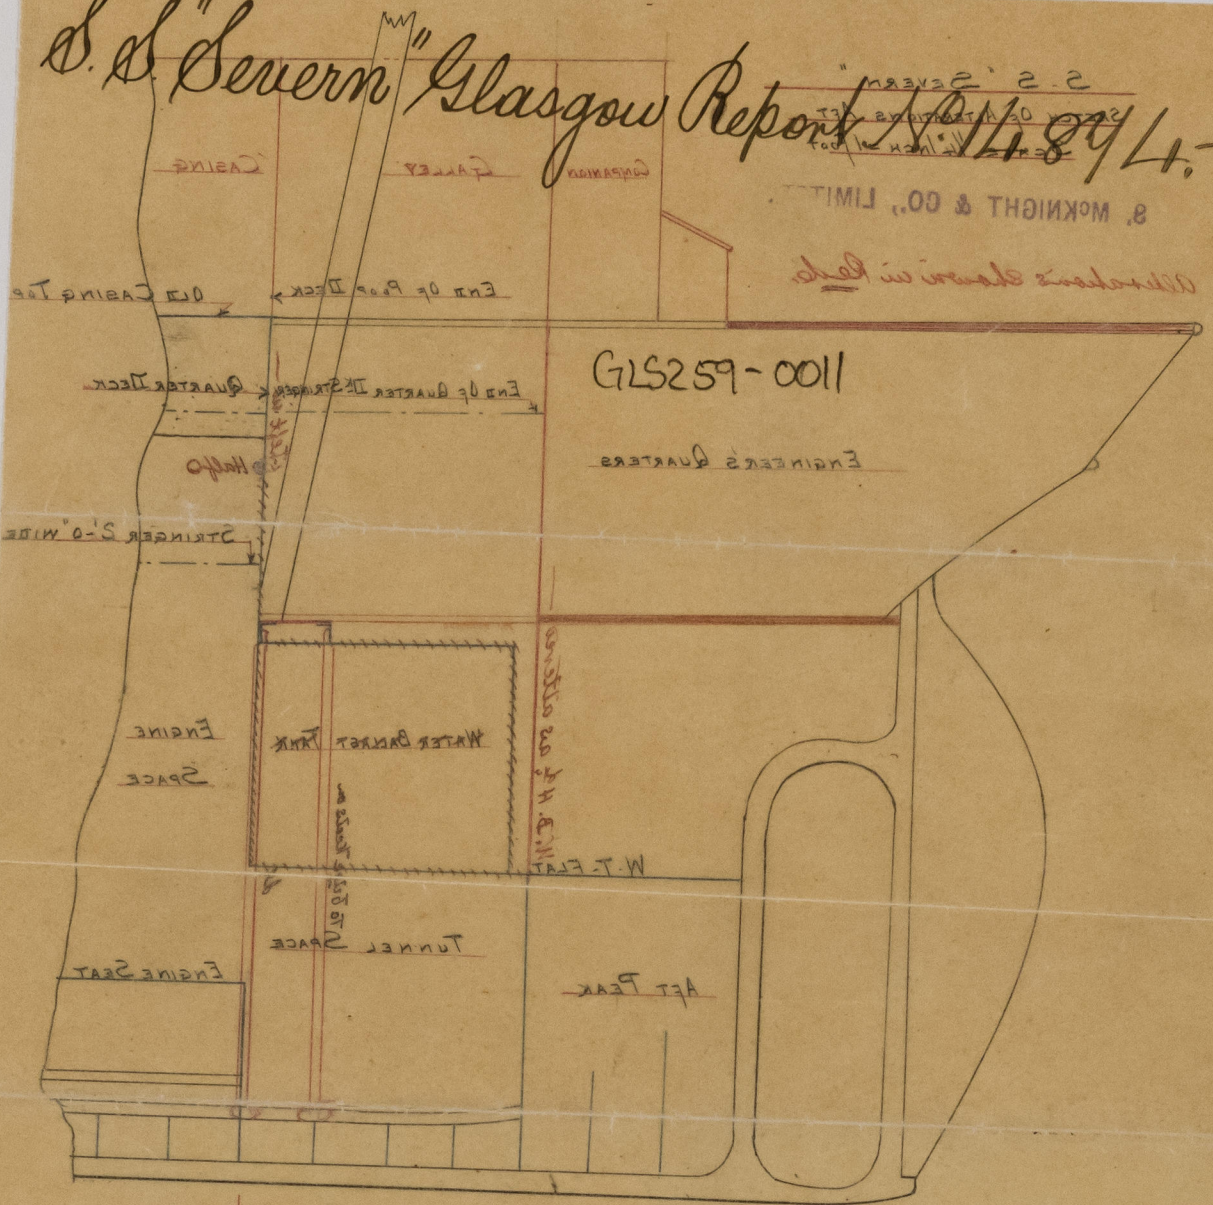 S.S. "Severn" Glasgow Report No 14894.-
S. S. "SEVERN"
SKETCH OF ALTERATIONS AFT
SCALE = 1/4" INCH = 1 FOOT
S. McKNIGHT & CO., LIMITED.
Alterations shown in Red.
CASING
GALLEY
COMPANION
OLD CASING TOP
END OF POOP DECK
GLS259-0011
QUARTER DECK
END OF QUARTER DK STRINGER
ENGINEER'S QUARTERS
STRINGER 2'-0" WIDE
ENGINE
SPACE
WATER BALLAST TANK
W.T. FLAT
TUNNEL SPACE
ENGINE SEAT
AFT PEAK